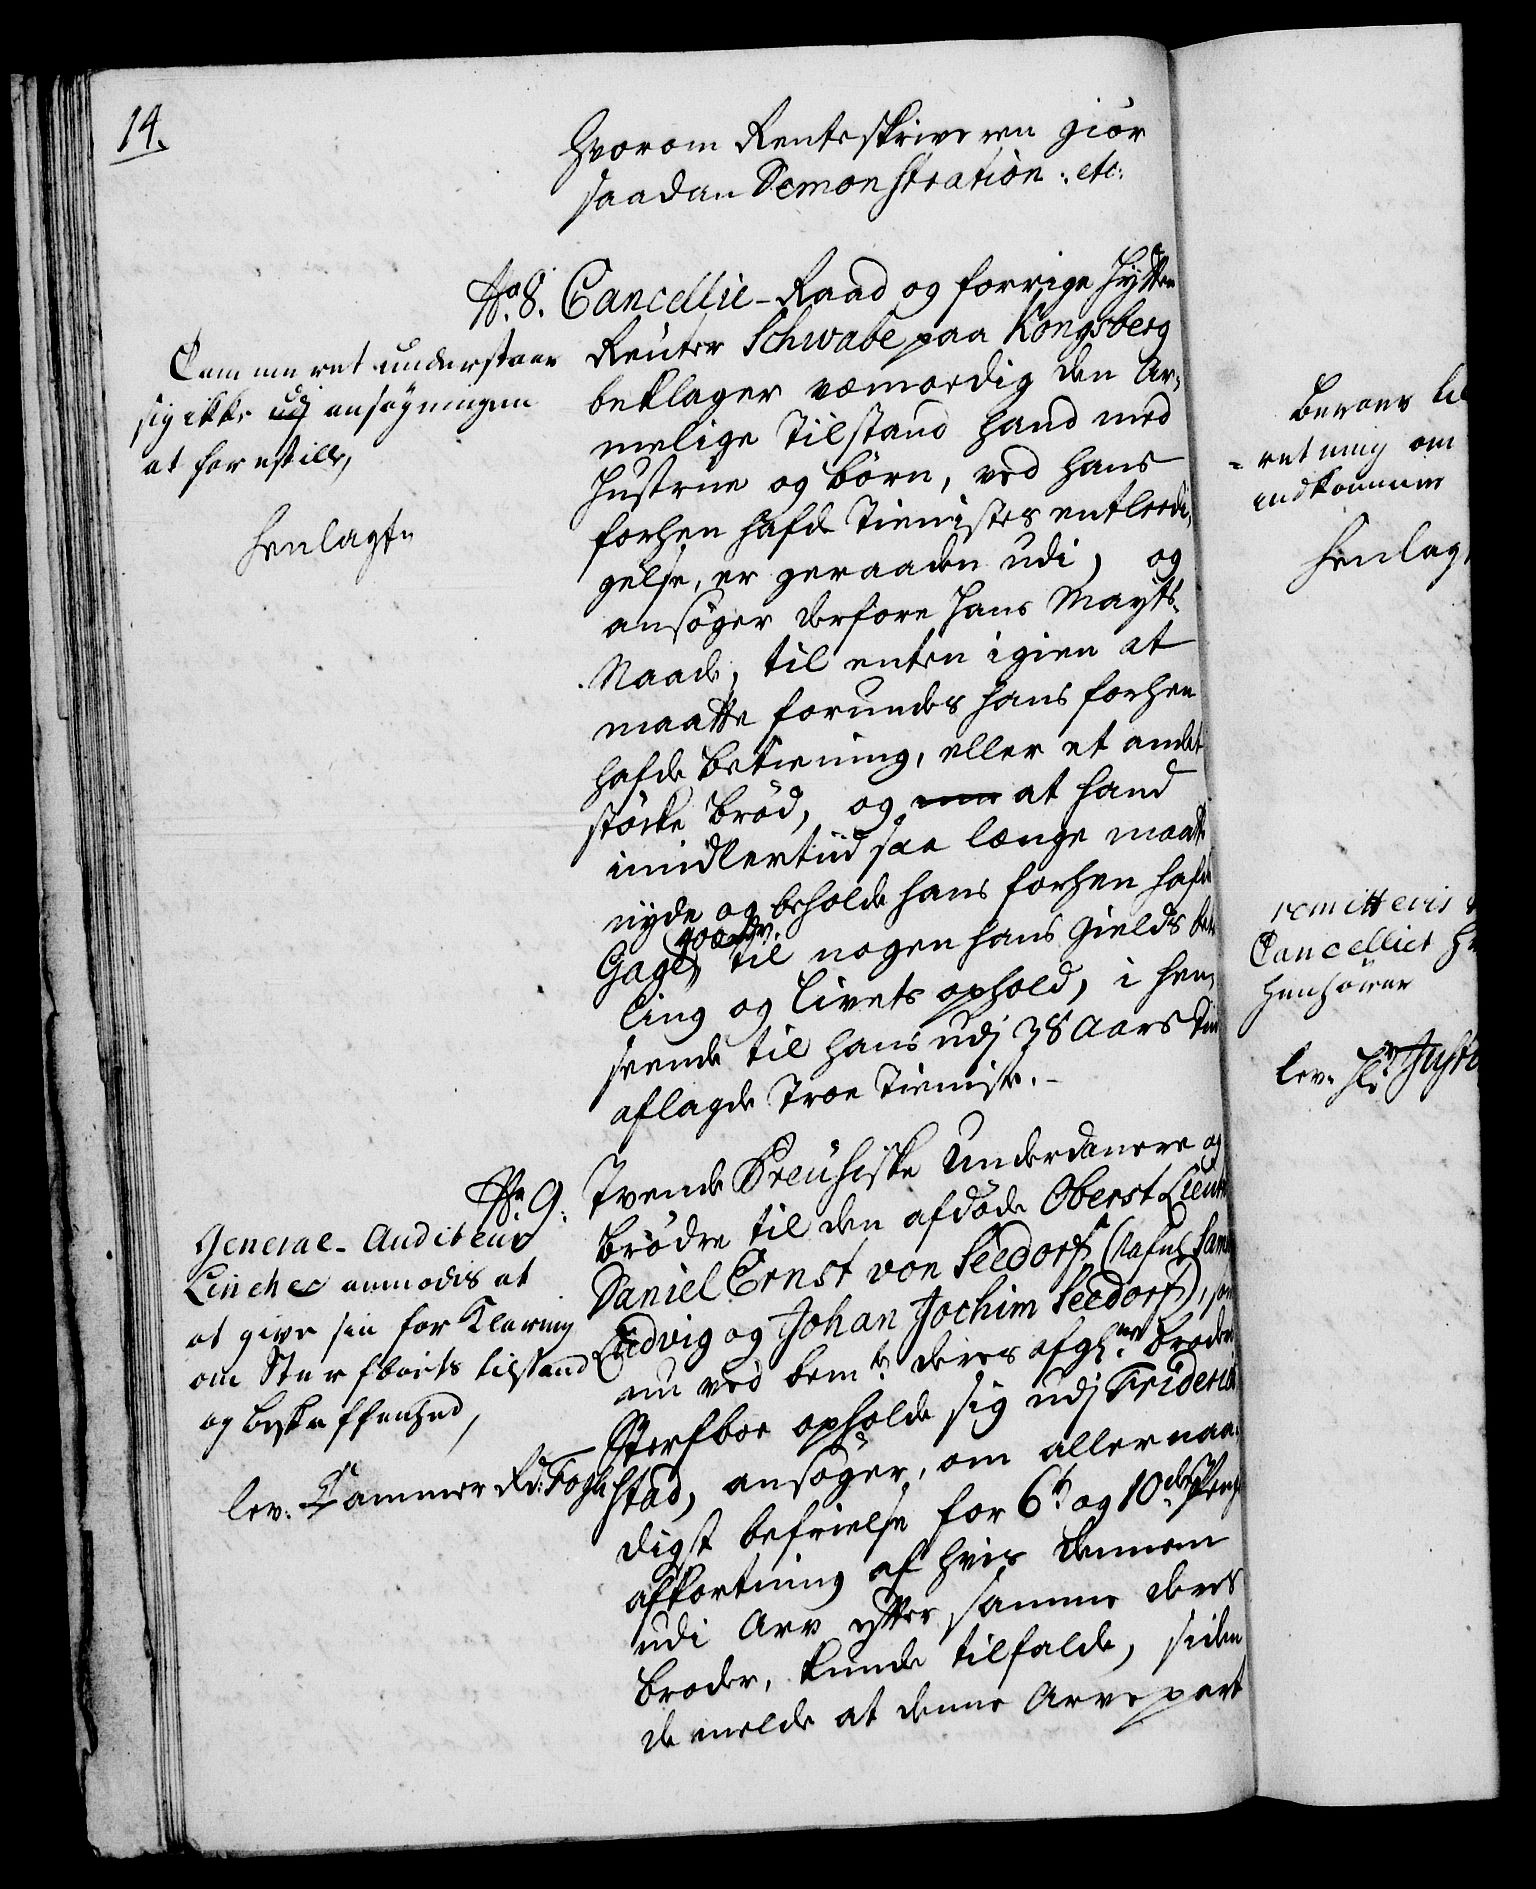 14.
hvorom Renteskriveren giör
saadan Demonstration. etc:
No. 8. Cancellie-Raad og forrige Hytte
Reuter Schwabe paa Kongsberg
beklager vemordig den Ar-
melige Tilstand hand med
Hustrue og Börn, ved hans
forhen hafde Tienistes entledi-
gelse, er geraaden udi, og
ansöger derfore Hans Mayts
Naade, til enten igien at
maatte forundes hans forhen
hafde betiening, eller et andet
stöcke bröd, og at hand
imidlertiid saa længe maatte
nyde og beholde hans forhen hafde
Gage til nogen hans Gields beta
ling og Livets ophold, i hen-
seende til hans udj 38 Aars Tiid
aflagde Troe Tieniste.
Cammeret understaaer
sig ikke udj ansøgningen
at forestille,
henlagt
No. 9. Tvende Preusiske Underdanere og
brödre til den afdöde Oberst Lieut
Daniel Ernst von Seedorf (Nafnl Sam
Ludvig og Johan Jochim Seedorf), som
nu ved bemte deres afgl. Broders
Sterfboe opholde sig udj Friderich
stad, ansöger, om allernaa-
digst befrielse for 6te og 10de Penge
afkortning af hvis dennem
udi Arv efter samme deres
broder, kunde tilfalde, siden
de melde at denne Arvepart
General-Auditeur
anmodes at
at give sin forklaring
om Sterfboets tilstand
og beskaffenhed,
lev. Cammer Rd: Fogh
Beroer til
-retning om
indkommer
henlagt
remitteris
Cancelliet
henhörer
lev. Hr Justi